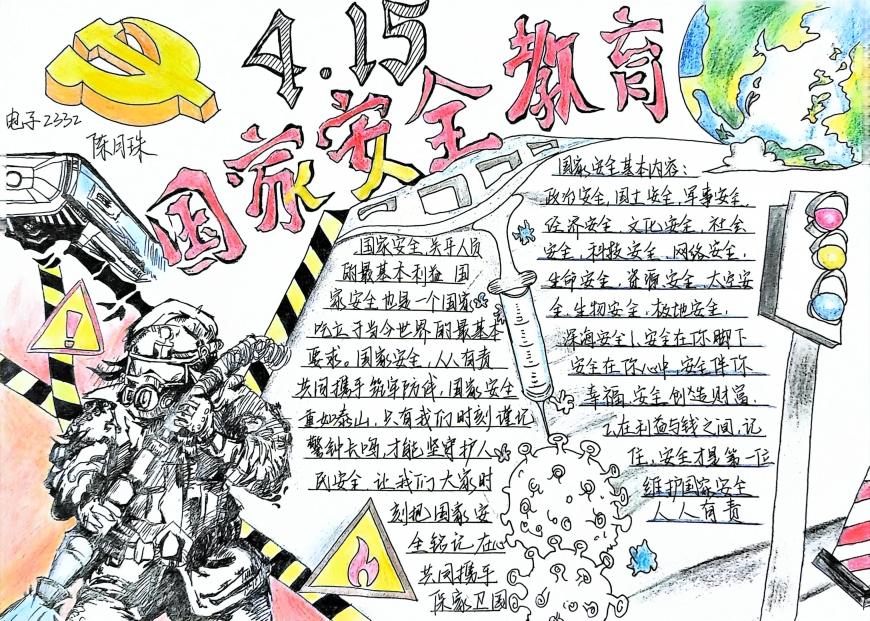 4.15
国家安全教育
电子2332
陈月珠
国家安全,关乎人员
的最基本利益 国
家安全也是一个国家
屹立于当今世界的最基本
要求。国家安全,人人有责
共同携手筑牢防线,国家安全
重如泰山,只有我们时刻谨记
警钟长鸣,才能坚守护人
民安全 让我们大家时
刻把国家安
全铭记在心
共同携手
保家卫国
国家安全基本内容:
政治安全,国土安全,军事安全,
经济安全,文化安全,社会
安全,科技安全,网络安全,
生命安全,资源安全,太空安
全,生物安全,极地安全,
深海安全1、安全在你脚下
安全在你心中,安全伴你
幸福,安全创造财富.
2、在利益与钱之间,记
住,安全才是第一位
维护国家安全
人人有责